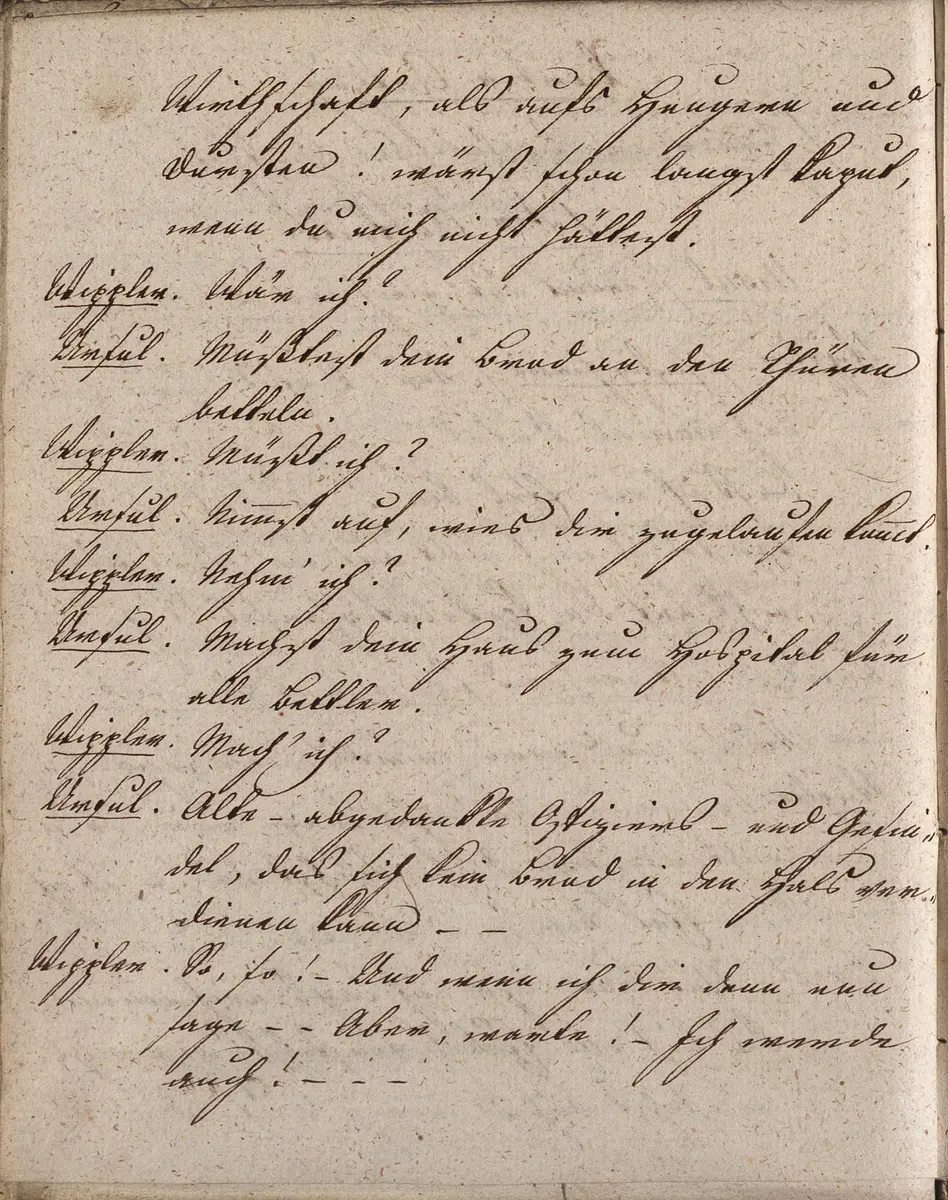 Wirthschaft, als aufs Hungern und
Dursten! wärst schon langst kaput,
wenn du mich nicht hättest.
Wippler. Wär ich?
Ursul. Müßtest dein Brod an den Thüren
betteln.
Wippler. Müßt ich?
Ursul. Nimst auf, wies dir zugelaufen komt.
Wippler. Nehm' ich?
Ursul. Machst dein Haus zum Hospital für
alle Bettler.
Wippler. Mach' ich?
Ursul. Alte - abgedankte Offiziers - und Gesin=
del, das sich kein Brod in den Hals ver=
dienen kann - -
Wippler. So, so! - Und wenn ich dir denn nun
sage - - Aber, warte! - Ich werde
auch! - - - -